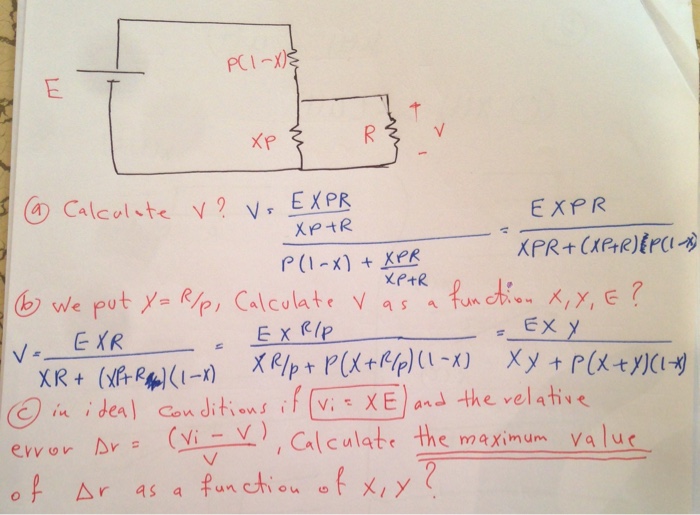 P(1-X)
E
XP
R
+
V
-
(a) Calculate V? V = (E XPR / XP+R) / (P(1-X) + XPR / XP+R) = E XPR / XPR + (XP+R){P(1-X)
(b) we put Y = R/P, Calculate V as a function X, Y, E ?
V = E XR / XR + (XP+R)(1-X) = E X R/P / X R/P + P(X+R/P)(1-X) = E X Y / XY + P(X+Y)(1-X)
(c) in ideal conditions if Vi = XE and the relative
error Δr = (Vi - V) / V, Calculate the maximum value
of Δr as a function of X, Y ?